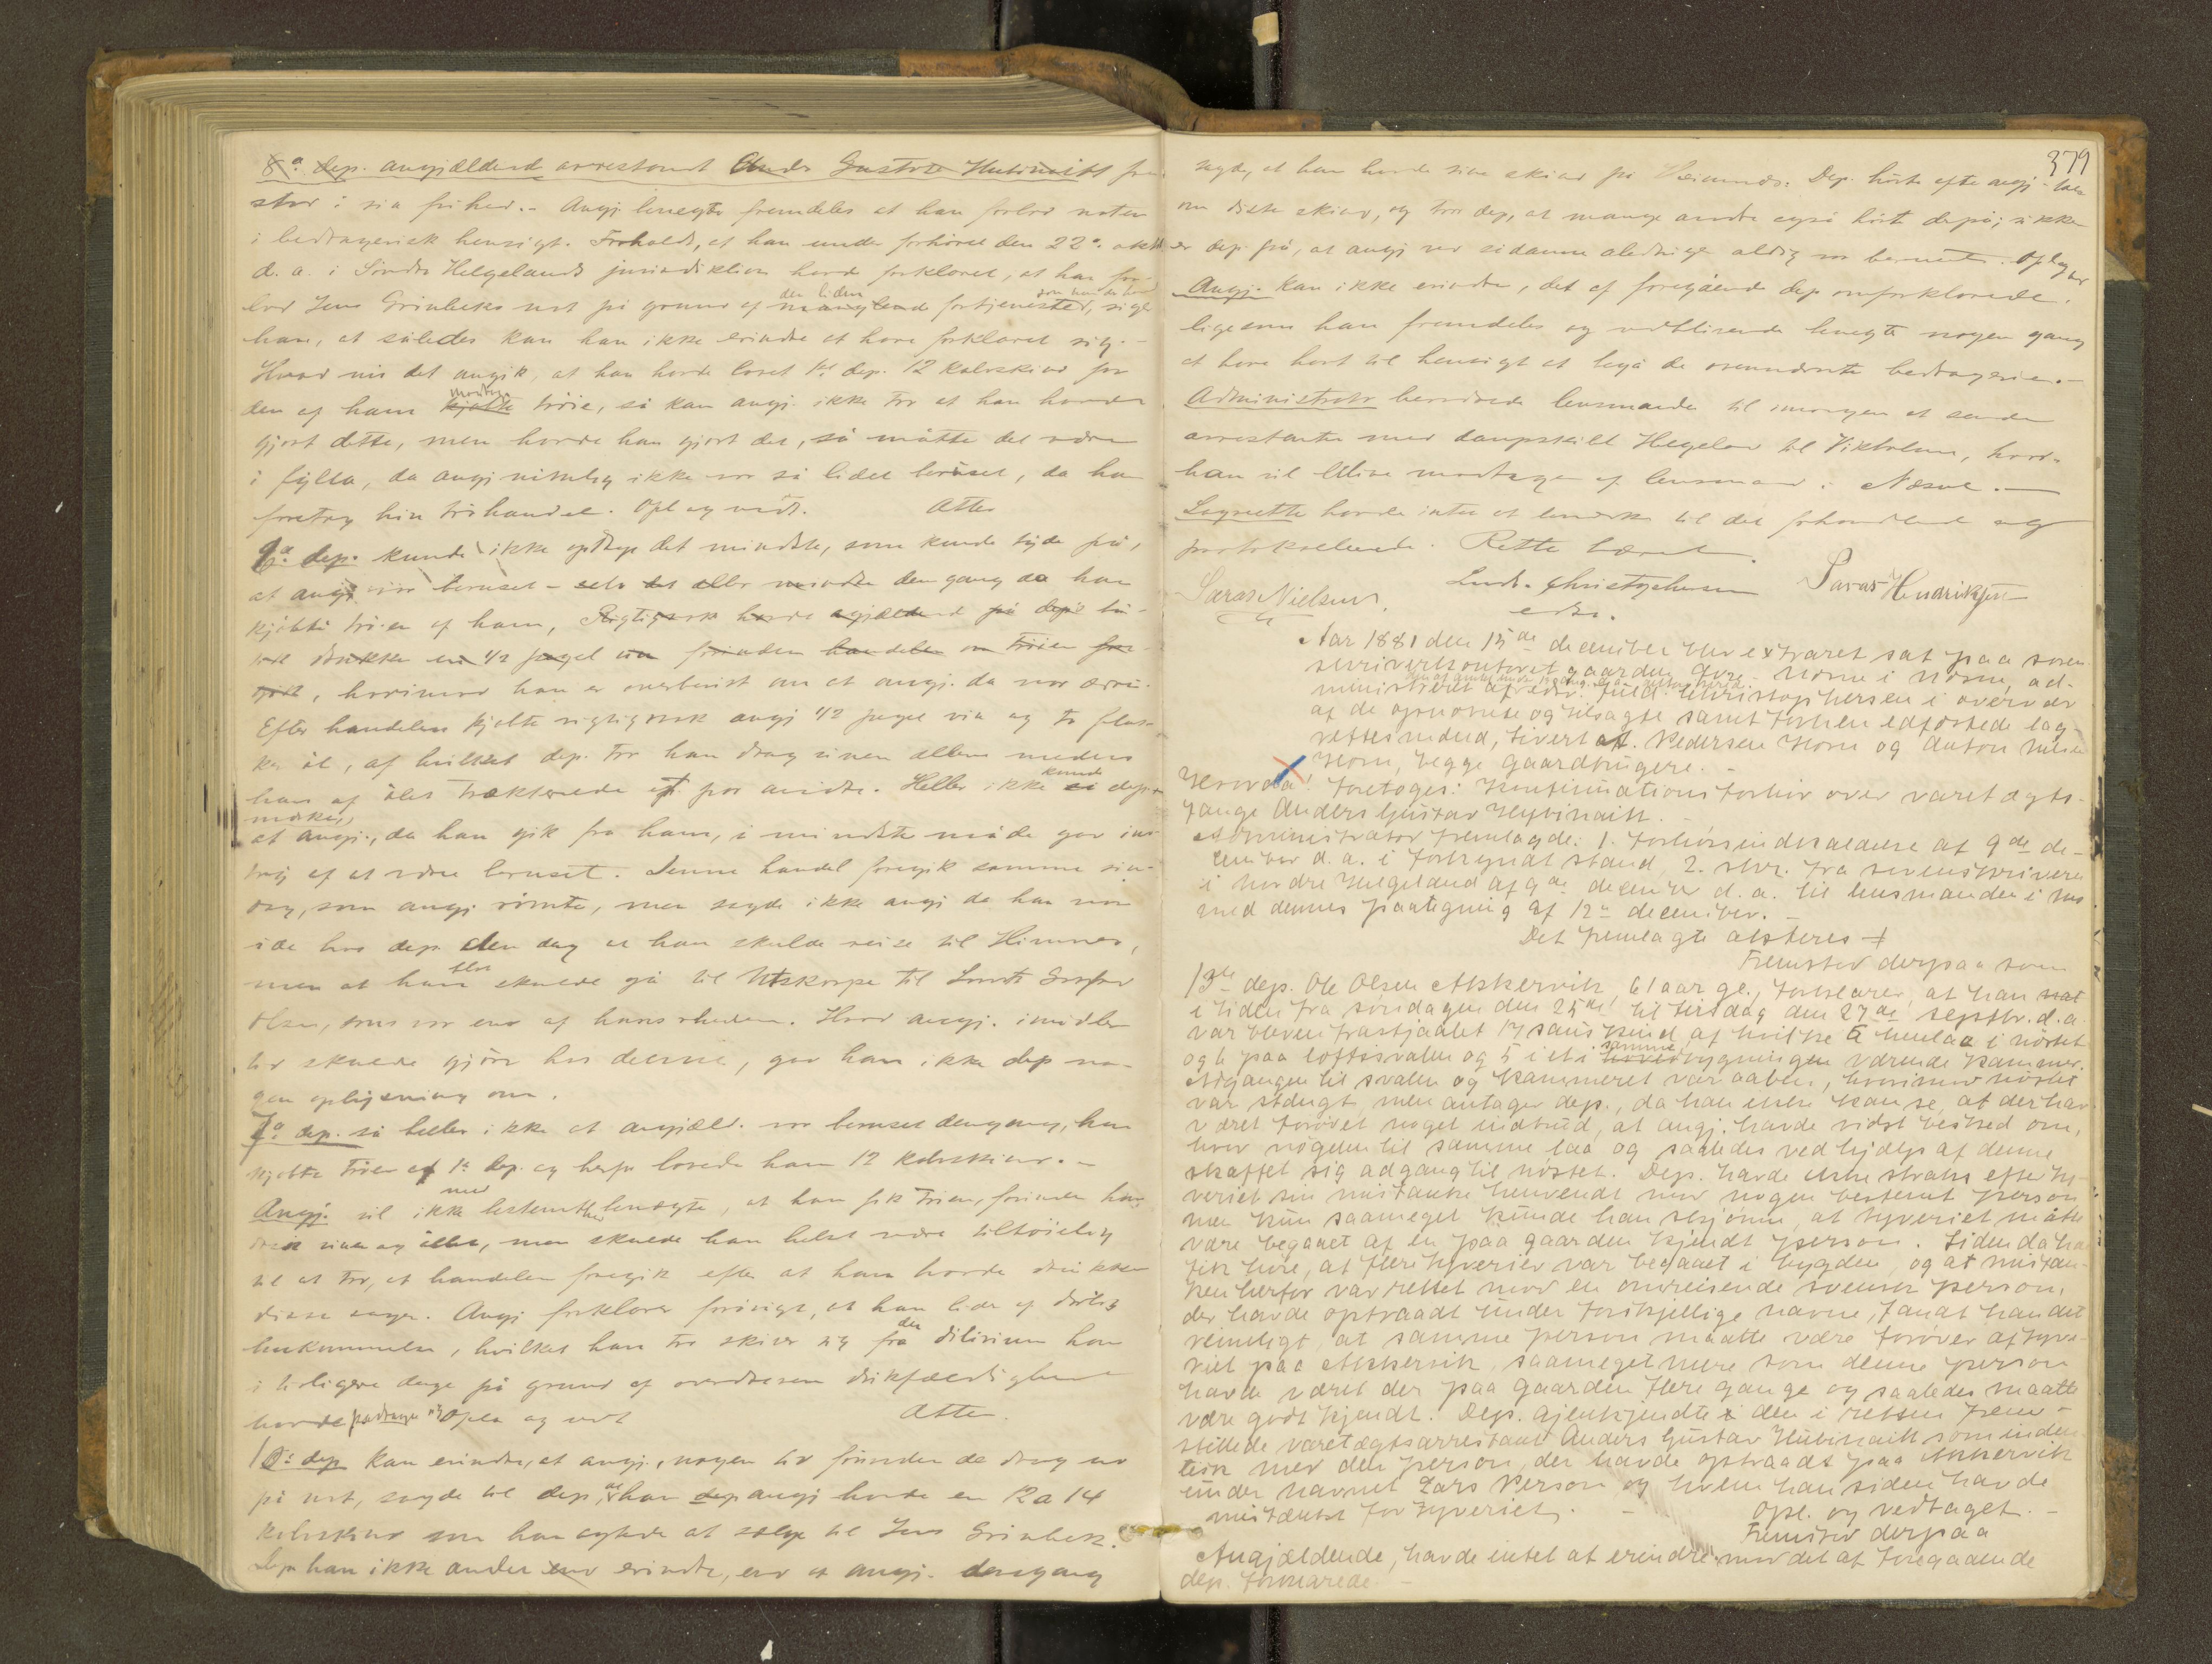 8de dep. angjældende arrestant Anders Gustav Hubinait frem
stod i sin frihed. - Angj. benegter fremdeles at han forlod noten
i bedragerisk hensigt. Foreholdt, at han under forhöret den 22de oktb
d. a. i Söndre Helgelands jurisdiktion havde forklaret, at han for-
lod Jens Grönbeks not på grund af den liden fortjeneste, siger
han, at således kan han ikke erindre at have forklaret sig. -
Hvad nu det angik, at han havde lovet 1ste dep. 12 kalveskind for
den af ham modtagne tröie, så kan angj. ikke tro at han havde
gjort dette, men havde han gjort det, så måtte det være
i fylla, da angj. nemlig ikke var så lidet beruset, da han
foretog hin tröihandel. Opl. og vedt. Atter
6te dep. kunde ikke opdage det mindste, som kunde tyde på,
at angj. var beruset - den gang da han
kjöbte tröien af ham,
hvorimod han er overbevist om at angj. da var ædru.
Efter handelen kjöbte rigtignok angj. 1/2 pægel vin og to flas-
ker öl, af hvilket dep. tror han drag vinen allene medens
han af ölet trakterede et par andre. Heller ikke kunde dep.
mærke,
at angj., da han gik fra ham, i mindste måde gav ind-
tryk af at være beruset. Denne handel foregik samme sön-
dag, som angj. römte, men sagde ikke angj. da han var
inde hos dep. den dag at han skulde reise til Himnes,
men at han blot skulde gå til Utskarpe til
Olsen, som var end af hans rhedere. Hvad angj. imidler
tid skulde gjöre hos denne, gav han ikke dep. no-
gen oplysning om.
7de dep. så heller ikke at angjæld. var beruset dengang, han
kjöbte tröien af 1ste dep. og herfor lovede ham 12 kalveskind. -
Angj. vil ikke med bestemthed benegte, at han fik tröien, förinden han
drak vinen og öllet, men skulde han helst være tilböielig
til at tro, at handelen foregik efter at han havde drukket
disse sager. Angj. forklarer forövrigt, at han lider af dårlig
hukommelse, hvilket han tror skriver sig fra den dilirium han
i tidligere dage på grund af overdreven drikfældighed
havde pådraget sig. Oplæst og vedt. Atter
10de dep. kan erindre, at angj., nogen tid förinden de drog ud
på not, sagde til dep., at han angj. havde en 12 a 14
kalveskind som han agtede at sælge til Jens Grönbek.
Dep. kan ikke andet erindre, end at angj. dengang
379
sagde, at han havde sine skind på Himnes. Dep. hörte ofte angj. tale
om disse skind, og tror dep., at mange andre også hört derpå; sikker
er dep. på, at angj. ved sådanne aldrig var beruset. Opl. og vedt.
Angj. kan ikke erindre, det af foregående dep. omforklarede,
ligesom han fremdeles og vedblivende benegter nogen gang
at have havt til hensigt at begå de bedragerier. -
Administrator beordrede lensmanden til imorgen at sende
arrestanten med dampskibet Helgeland til Vikholmen, hvor
han vil blive modtagen af lensmand i Næsne. -
Lagrettet havde intet at bemærke til det forhandlede og
protokollerede. Retten hævet.
Lars Nielsen. Ludv. Christophersen Paras Hendriksen
edsv.
Aar 1881 den 15de december blev extraret sat paa soren-
skriverkontoret gaarden Horn i Horn, ad-
ministreret af edsv. fuldm. Christophersen i overvær
af de opnævnte og tilsagte samt forhen edfæstede lag
rettesmænd, Sivert A. Pedersen Horn og Anton Nilsen
Horn, begge gaardbrugere. -
Hvorda! Foretoges: Kontinuationsforhör over varetægts-
fange Anders Gustav Hybinait. -
Administrator fremlagde: 1. forhörsindkaldelse af 9de de-
cember d. a. i forkyndt stand, 2. skr. fra sorenskriveren
i nordre Helgeland af 9de december d. a. til lensmanden i
med dennes paategning af 12te december. -
Det fremlagte akteres
Fremstod derpaa som
13de dep. Ole Olsen Akkervik, 61 aar gl., forklarer, at han
i tiden fra söndagen den 25de til tirsdag den 27de septbr. d. a.
var bleven frastjaalet 17 saueskind, af hvilke 6 henlaa i nöstet
og 6 paa loftssvalen og 5 i et i samme bygningen værende kammer.
Adgangen til svalen og kammeret var aaben, hvorimod nöstet
var stængt, men antager dep., da han ikke kan se, at der har
været forövet noget indbrud, at angj. havde vidst besked om,
hvor nögelen til samme laa og saaledes ved hjelp af denne
skaffet sig adgang til nöstet. Dep. havde ikke straks efter ty-
veriet sin mistanke henvendt mod nogen bestemt person
men kun saameget kunde han skjönne, at tyveriet maatte
være begaaet af en paa gaarden kjendt person. Siden da han
fik höre, at flere tyverier var begaaet i bygden, og at mistan-
ken herfor var rettet mod en omreisende svensk person,
der havde optraadt under forskjellige navne, fandt han det
rimeligt, at samme person maatte være foröver af tyve-
riet paa Akkervik, saameget mere som denne person
havde været der paa gaarden flere gange og saaledes maatte
være godt kjendt. Dep. gjenkjendte i den i retten frem-
stillede varetægtsarrestant Anders Gustav Hubinait som iden
tisk med den person, der havde optraadt paa Akkervik
under navnet Lars Person og hvem han siden havde
mistænkt for tyveriet. - Opl. og vedtaget. -
Fremstod derpaa
Angjældende, havde intet at erindre mod det af foregaaende
dep. forklarede. -